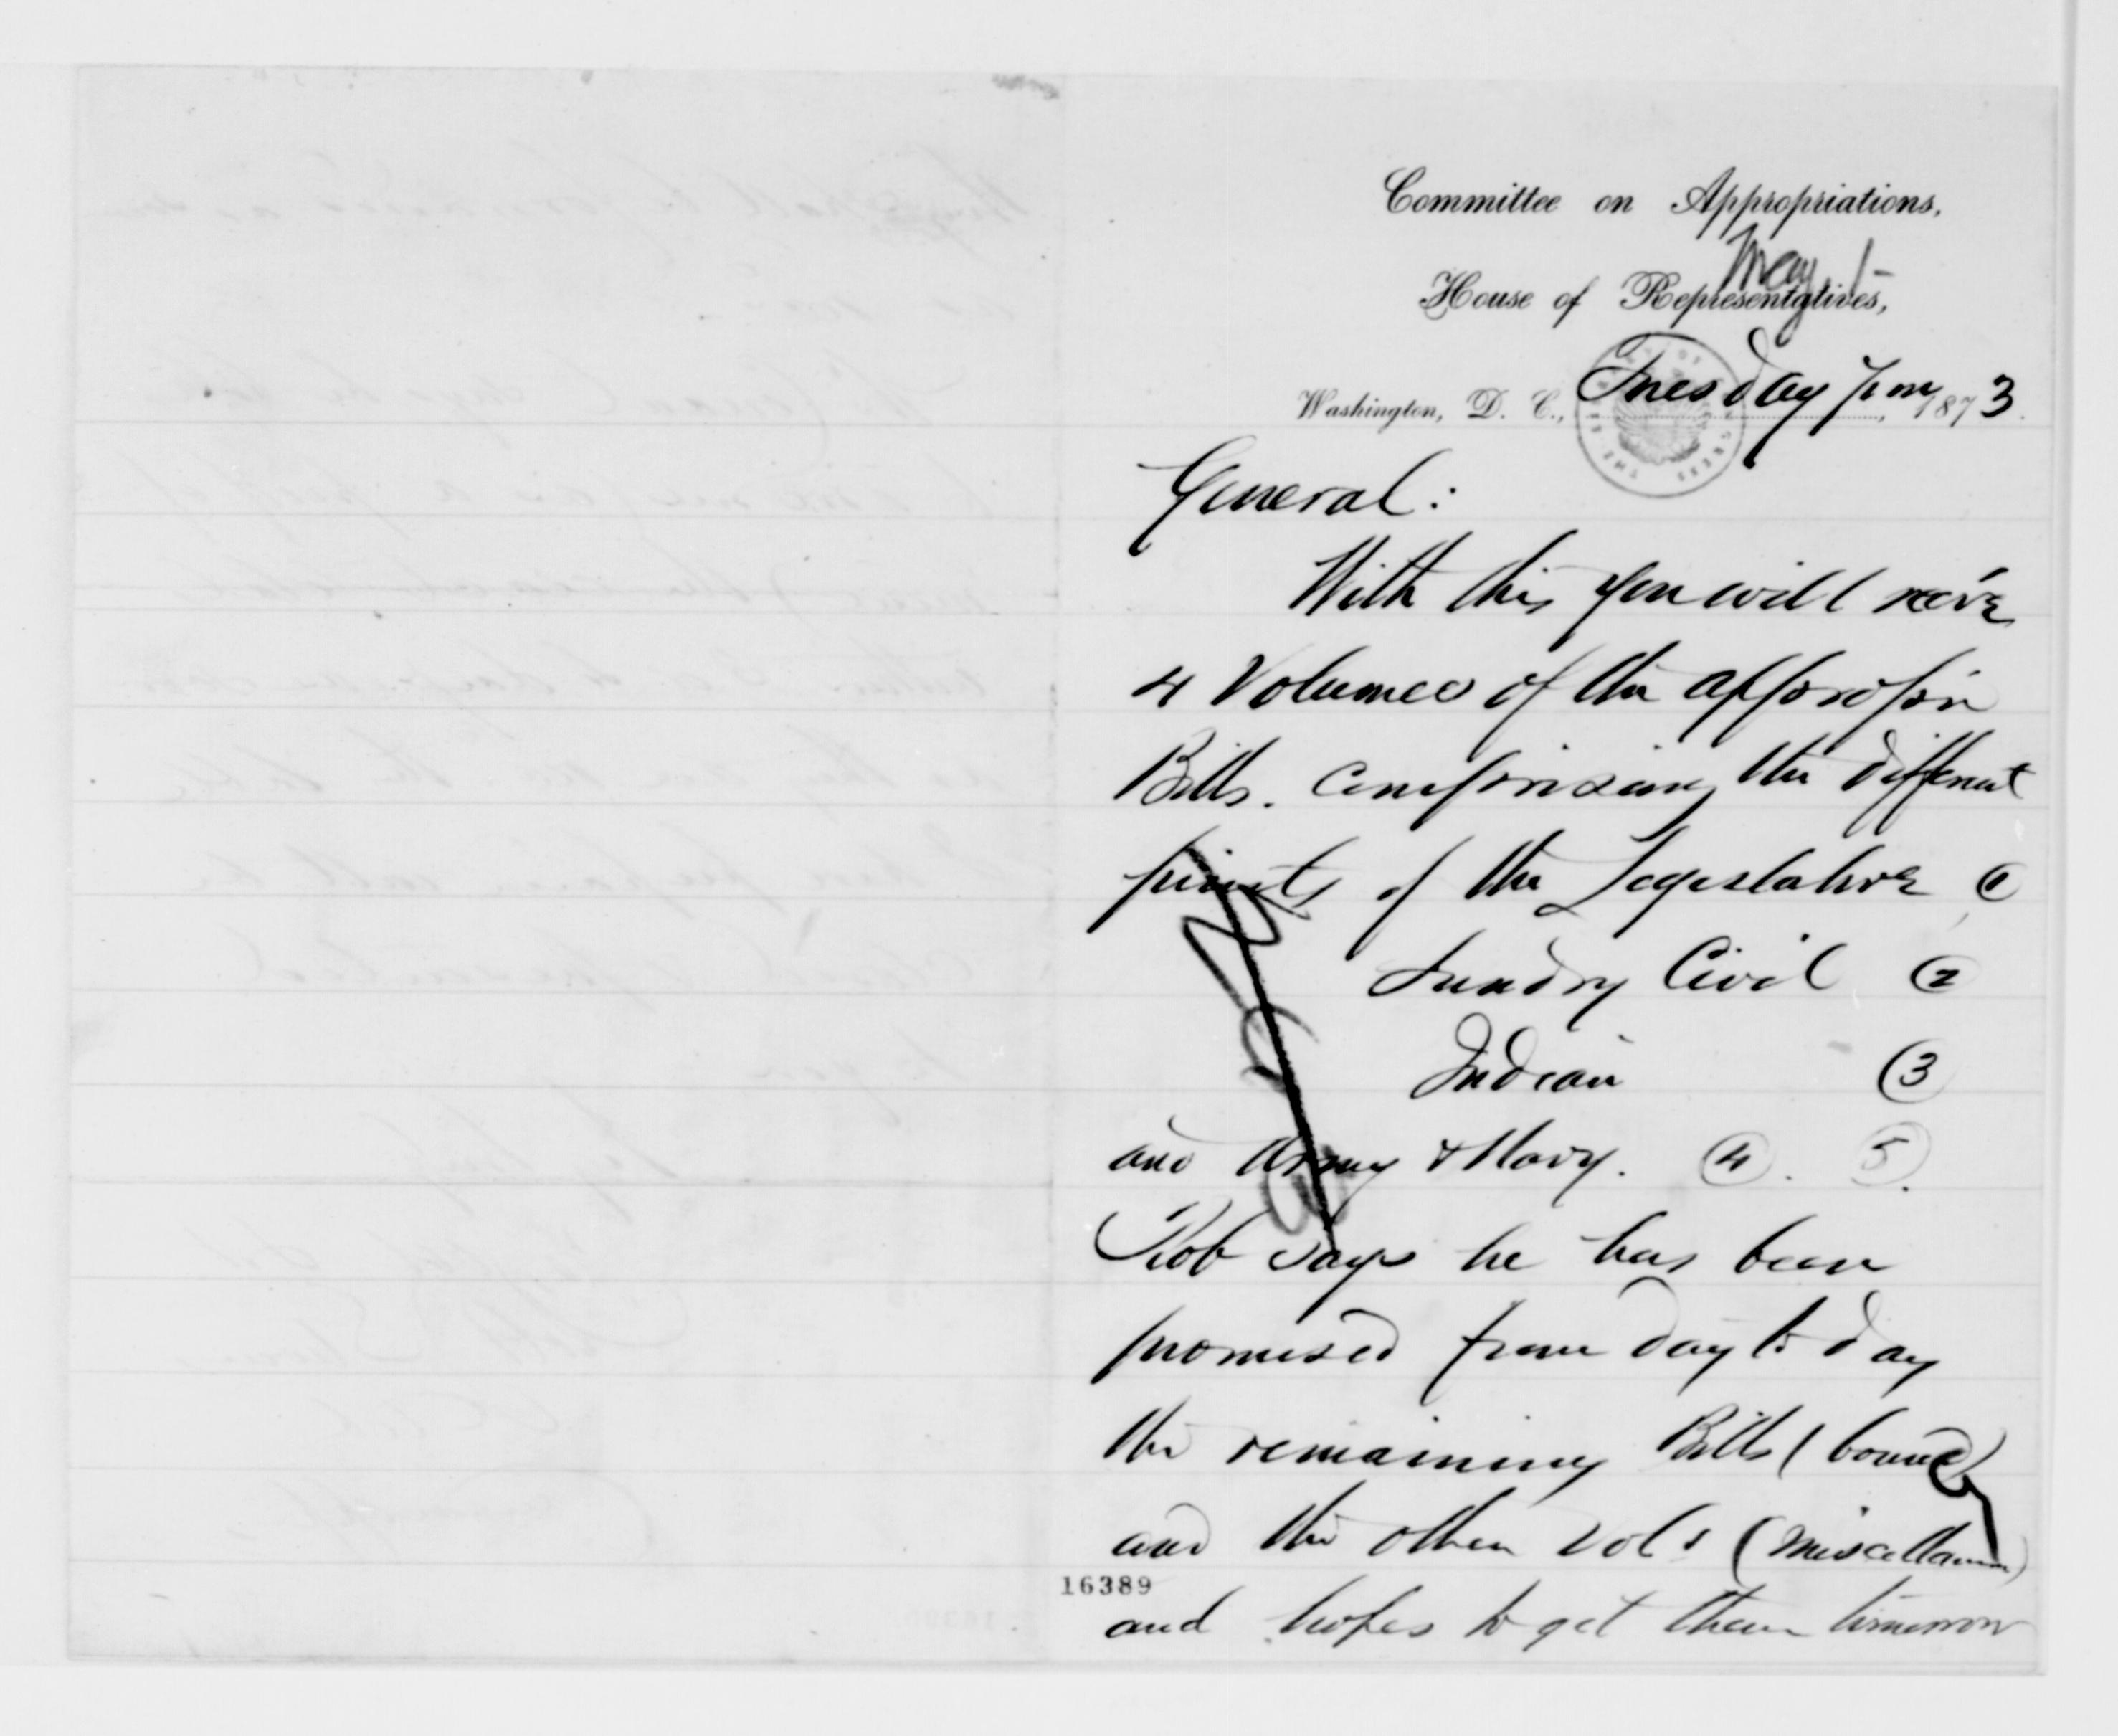 Committee on Appropriations,
May 1
House of Representatives,
Washington, D. C., Tuesday 7 pm, 1873.
General:
With this you will rec've
4 Volumes of the appropr'n
Bills. Comprising the different
prints of the Legislative (1)
Sundry Civil (2)
Indian (3)
and Army & Navy. (4). (5).
Rob says he has been
promised from day to day
the remaining Bills (bound)
and the other vols (Miscellaneous)
16389
and hopes to get them tomorrow